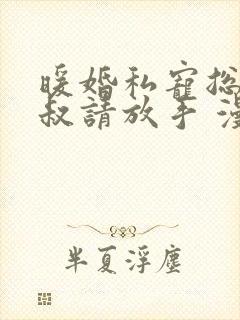 暖婚私寵總
叔請放手 漫
半夏浮塵